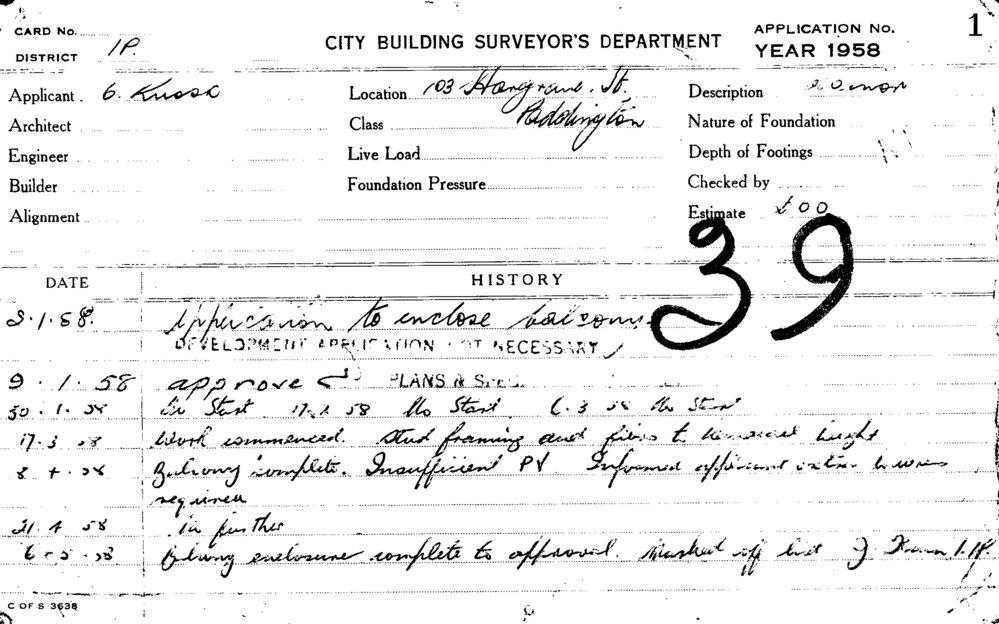 CARD No.
DISTRICT 1P.
CITY BUILDING SURVEYOR'S DEPARTMENT
APPLICATION No.
YEAR 1958
1
Applicant G. Location 103 Hargrave. St. Description
Architect Class Paddington Nature of Foundation
Engineer Live Load Depth of Footings
Builder Foundation Pressure Checked by
Alignment Estimate £00
39
DATE HISTORY
2.1.58. Application to enclose balcony
DEVELOPMENT APPLICATION NOT NECESSARY
9.1.58 approved PLANS & SPEC.
30.1.58 No Start 17.2.58 No Start 6.3.58 No Start
17.3.58 Work commenced. Stud framing and fibro to height
8 4.58 Balcony complete. Insufficient PV Informed applicant extra louvres
required
21.4 58 further
6-5.58 Balcony enclosure complete to approval. Marked off list
C OF S 3638